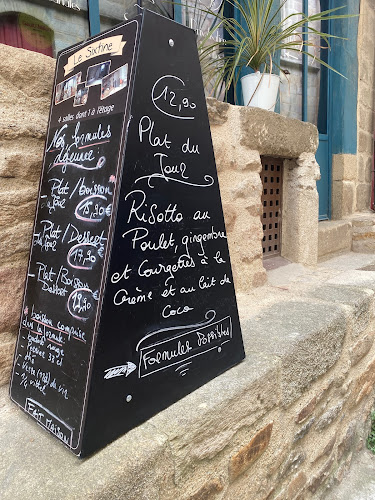 Le Sixtine
4 salles dont 1 à l'étage
Nos formules
déjeuner
Plat/Boisson
du jour
15,90€
Plat/Dessert
du jour
17,90€
Plat/Boisson
Dessert
19,90€
boisson comprise
dans la formule
33 cl
Verre (rosé) de vin
1/2 vittel
Fait Maison
12,90
Plat du
Jour
Risotto au
Poulet, gingembre
et Courgettes à la
Crème et au lait de
Coco
Formules Possibles